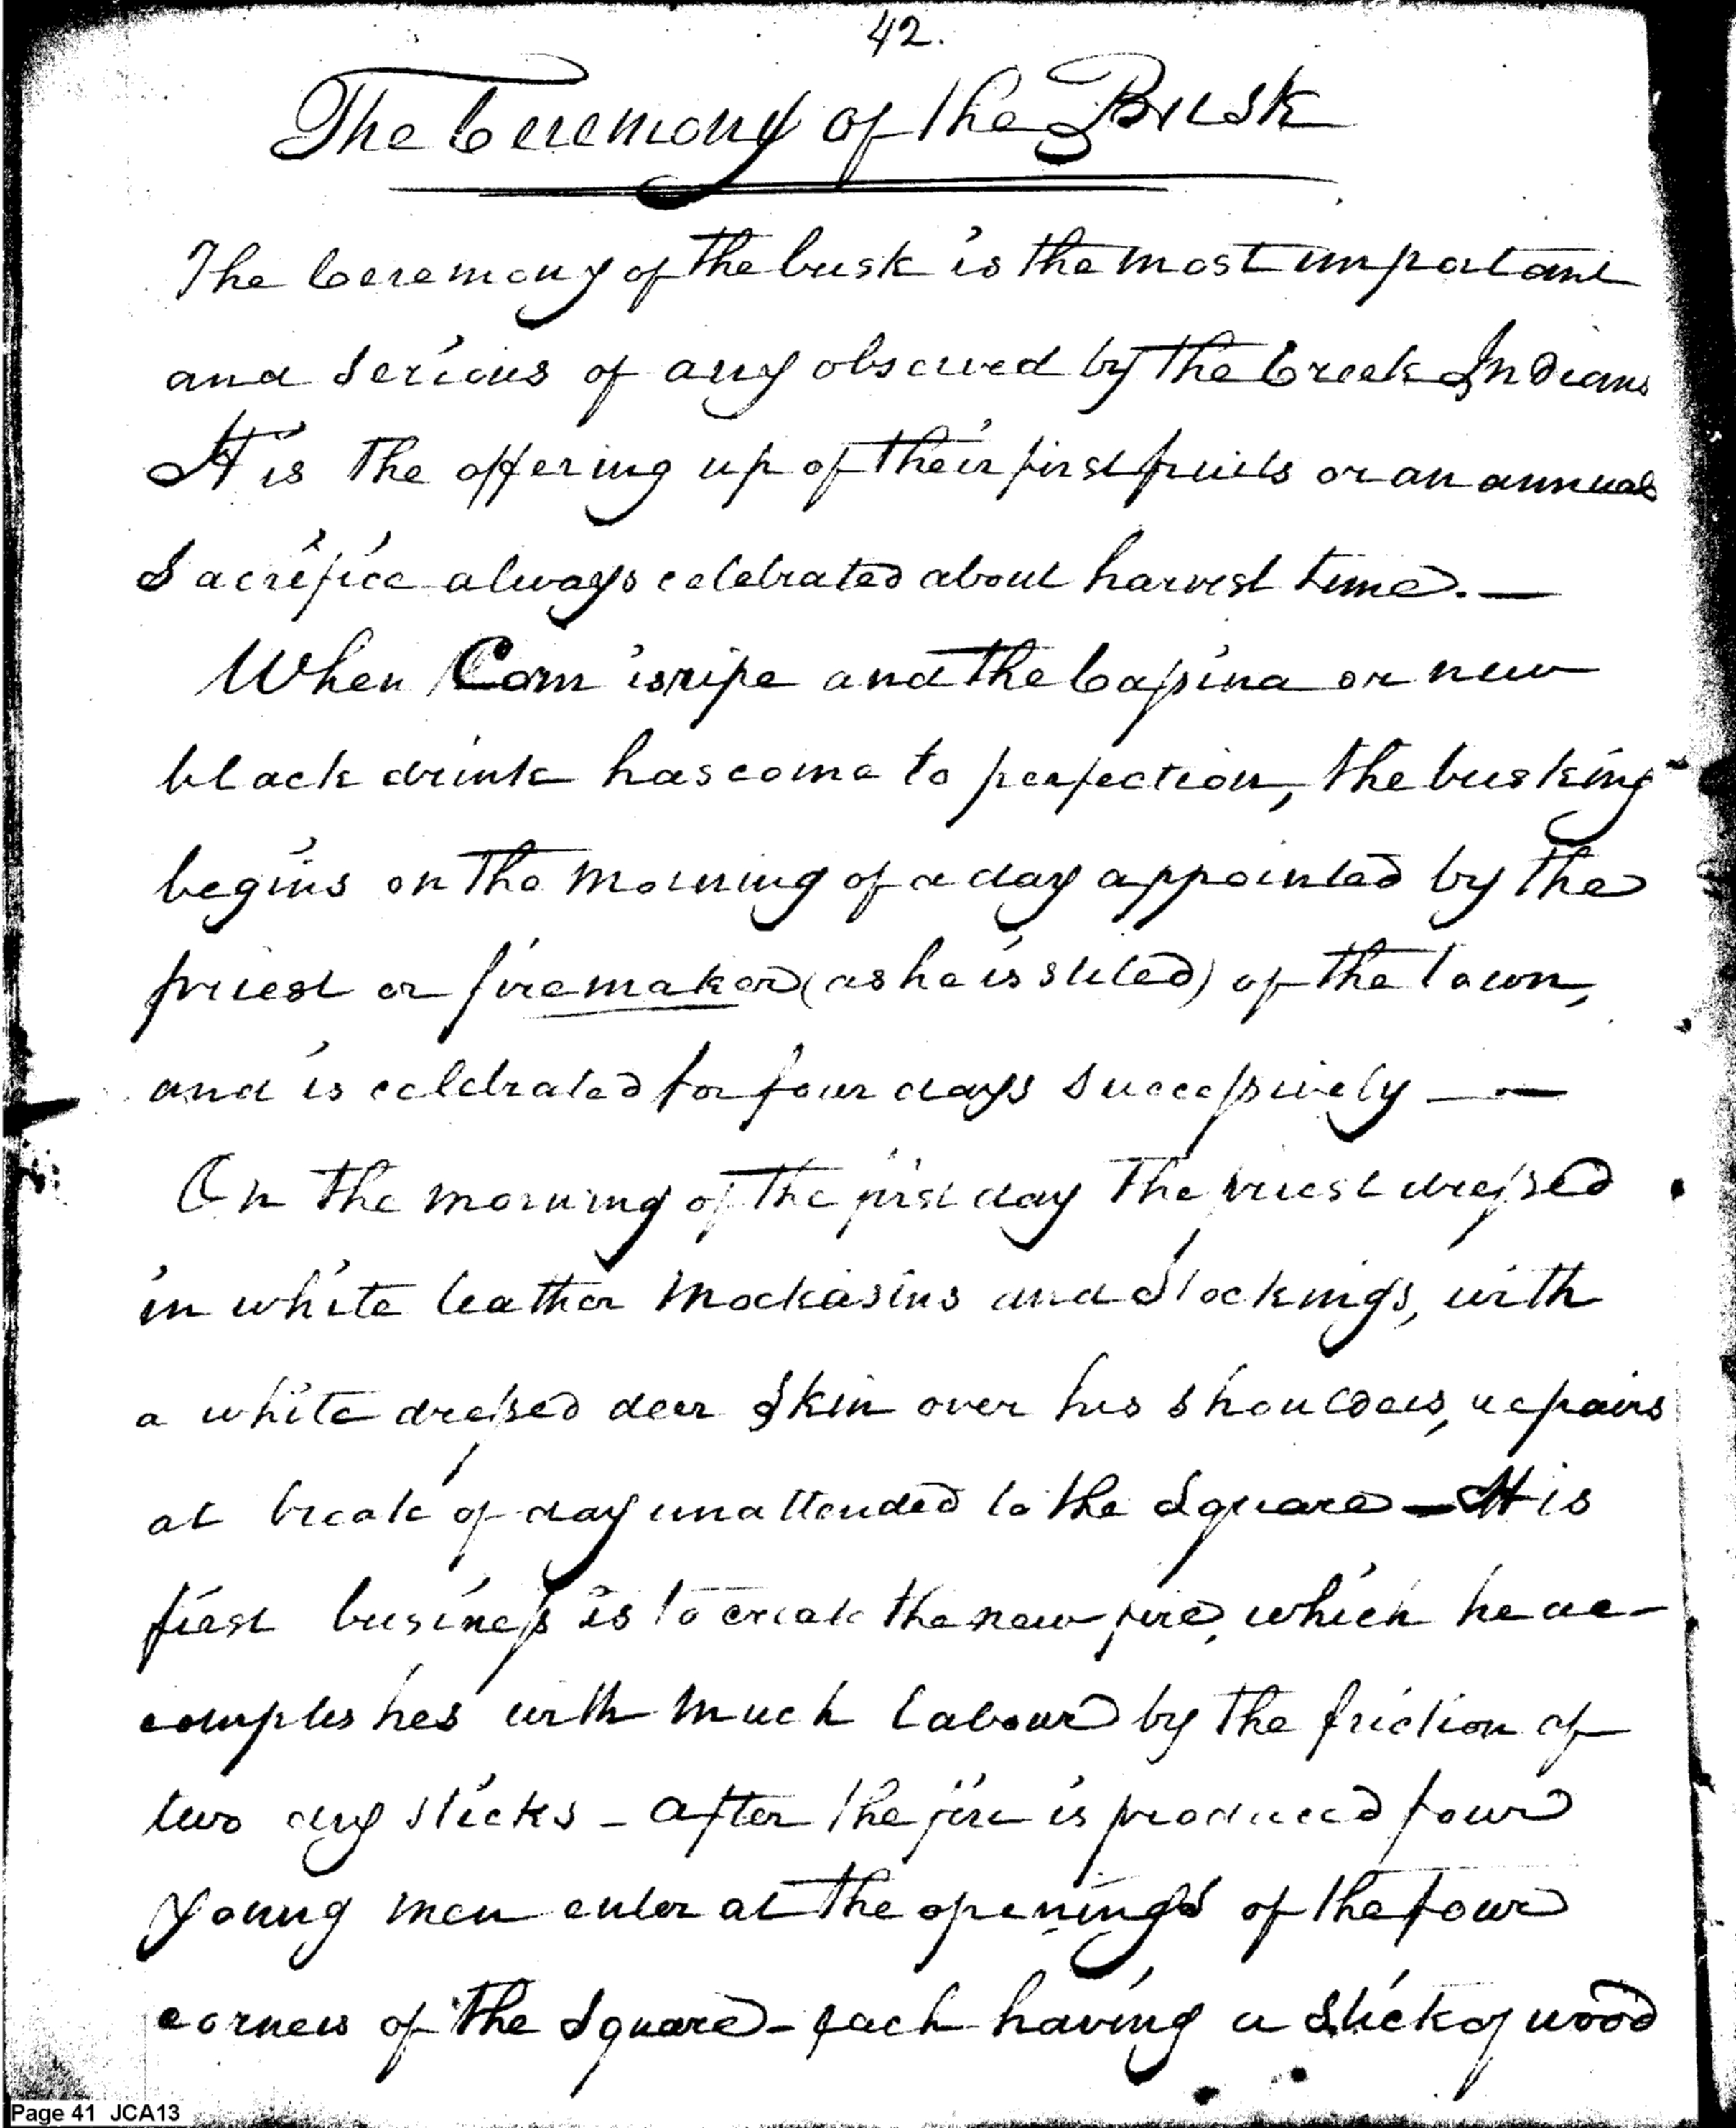 42.
The Ceremony of the Busk
The Ceremony of the busk is the most important
and serious of any observed by the Creek Indians
It is the offering up of their first fruits or an annual
Sacrifice always celebrated about harvest time. —
When Corn is ripe and the Cassina or new
black drink has come to perfection, the busking
begins on the morning of a day appointed by the
priest or firemaker (as he is stiled) of the town,
and is celebrated for four days successively —
On the morning of the first day the priest dressed
in white leather mockasins and stockings, with
a white dressed deer skin over his shoulders, repairs
at break of day unattended to the Square — His
first business is to create the new fire, which he ac-
complishes with much labour by the friction of
two dry sticks - After the fire is produced four
young men enter at the openings of the four
corners of the Square - each having a stick of wood
Page 41 JCA13